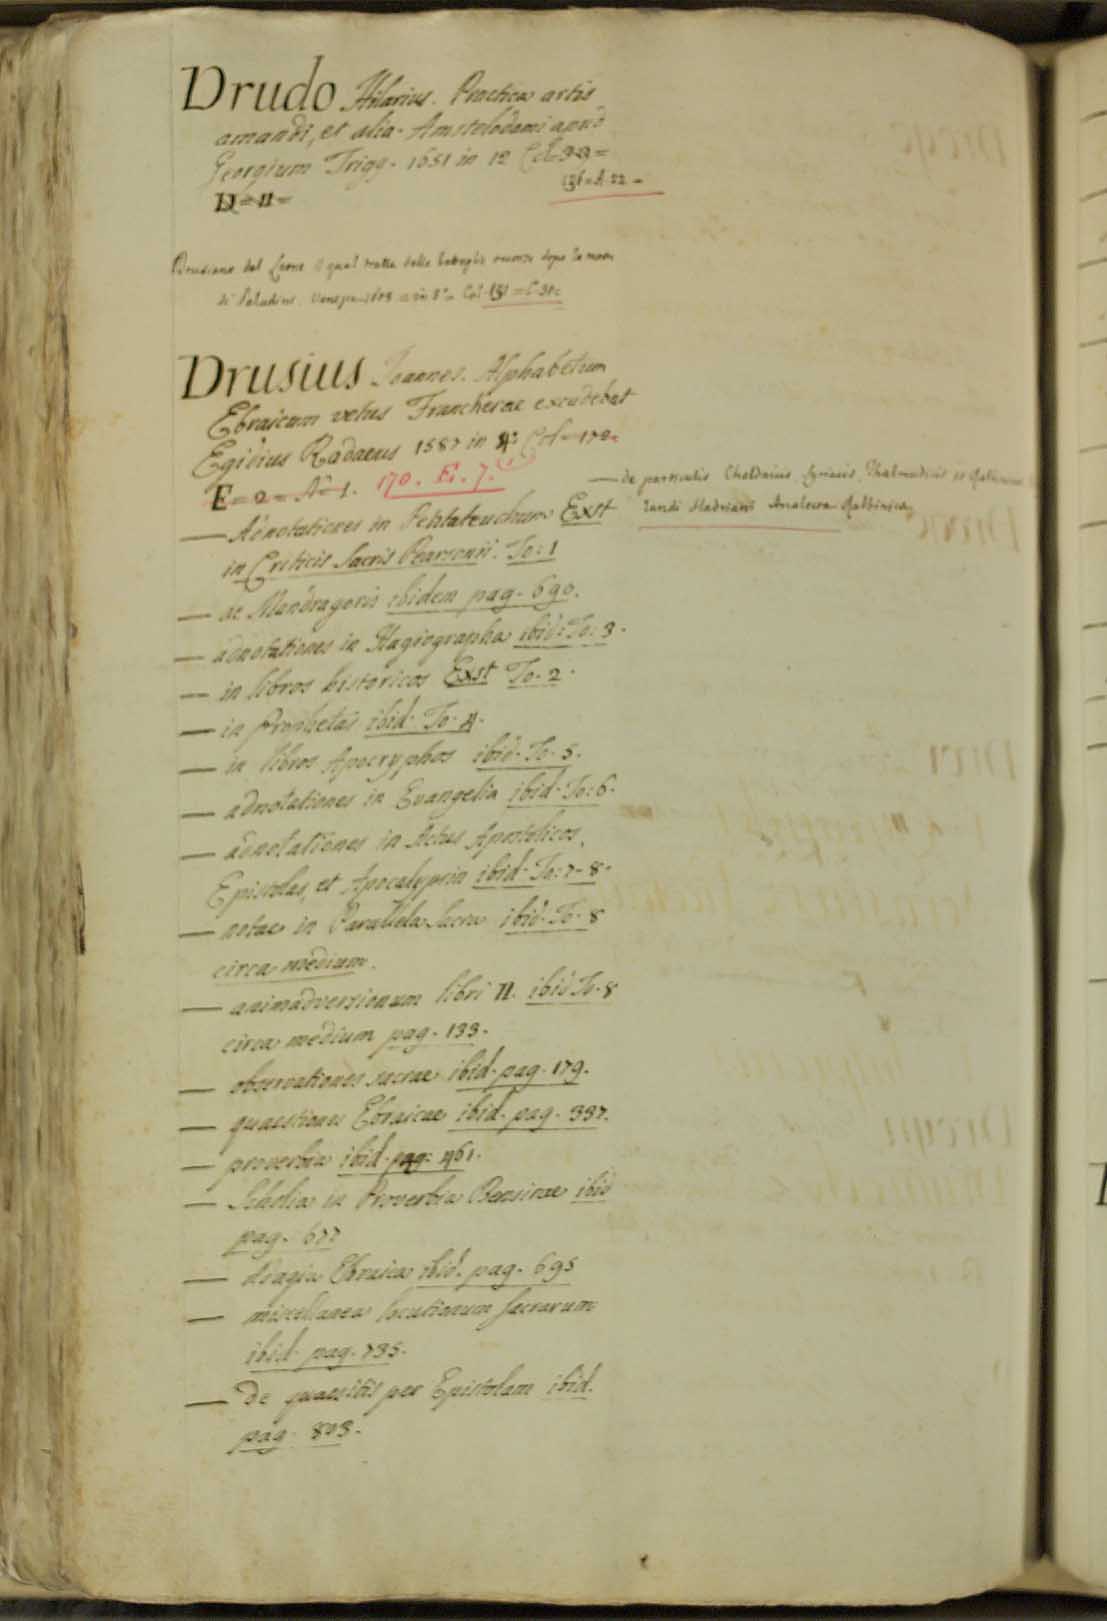 Drudo Hilarius. Practica artis
amandi, et alia. Amstelodami apud
Georgium Trigg. 1651 in 12
D = II =
136 = A. 22 =
Drusiano dal Leone il qual tratta delle battaglie dopo la morte
di Paladini. in 8º Col. 131 = C. 31 =
Drusius Joannes. Alphabetum
Ebraicum vetus Franekerae excudebat
Egidius Radaeus 1587 in 4º Col = 172 =
E = 2 = Nº 1. 170. E. 7.
— de particulis Chaldaicis, Syriacis, Thalmudicis et Rabbinicis
landi Hadriani Analecta Rabbinica
— Adnotationes in Pentateuchum Exst
in Criticis Sacris Pearsonii. To: 1
— de Mandragoris ibidem pag. 690.
— adnotationes in Hagiographa ibid: To: 3.
— in libros historicos Exst To. 2.
— in Prophetas ibid. To. 4.
— in libros Apocryphos ibid. To. 5.
— adnotationes in Euangelia ibid. To: 6.
— adnotationes in Actus Apostolicos,
Epistolas, et Apocalypsin ibid. To: 7. 8.
— notae in Parallela Sacra ibid. To. 8
circa medium.
— animadversionum libri II. ibid To. 8
circa medium pag. 133.
— observationes sacrae ibid. pag. 179.
— quaestiones Ebraicae ibid. pag. 337.
— proverbia ibid. pag: 461.
— Scholia in Proverbia Bensirae ibid
pag. 677
— adagia Ebraica ibid. pag. 695
— miscellanea locutionum sacrarum
ibid. pag. 735.
— De quaesitis per Epistolam ibid.
pag. 803.